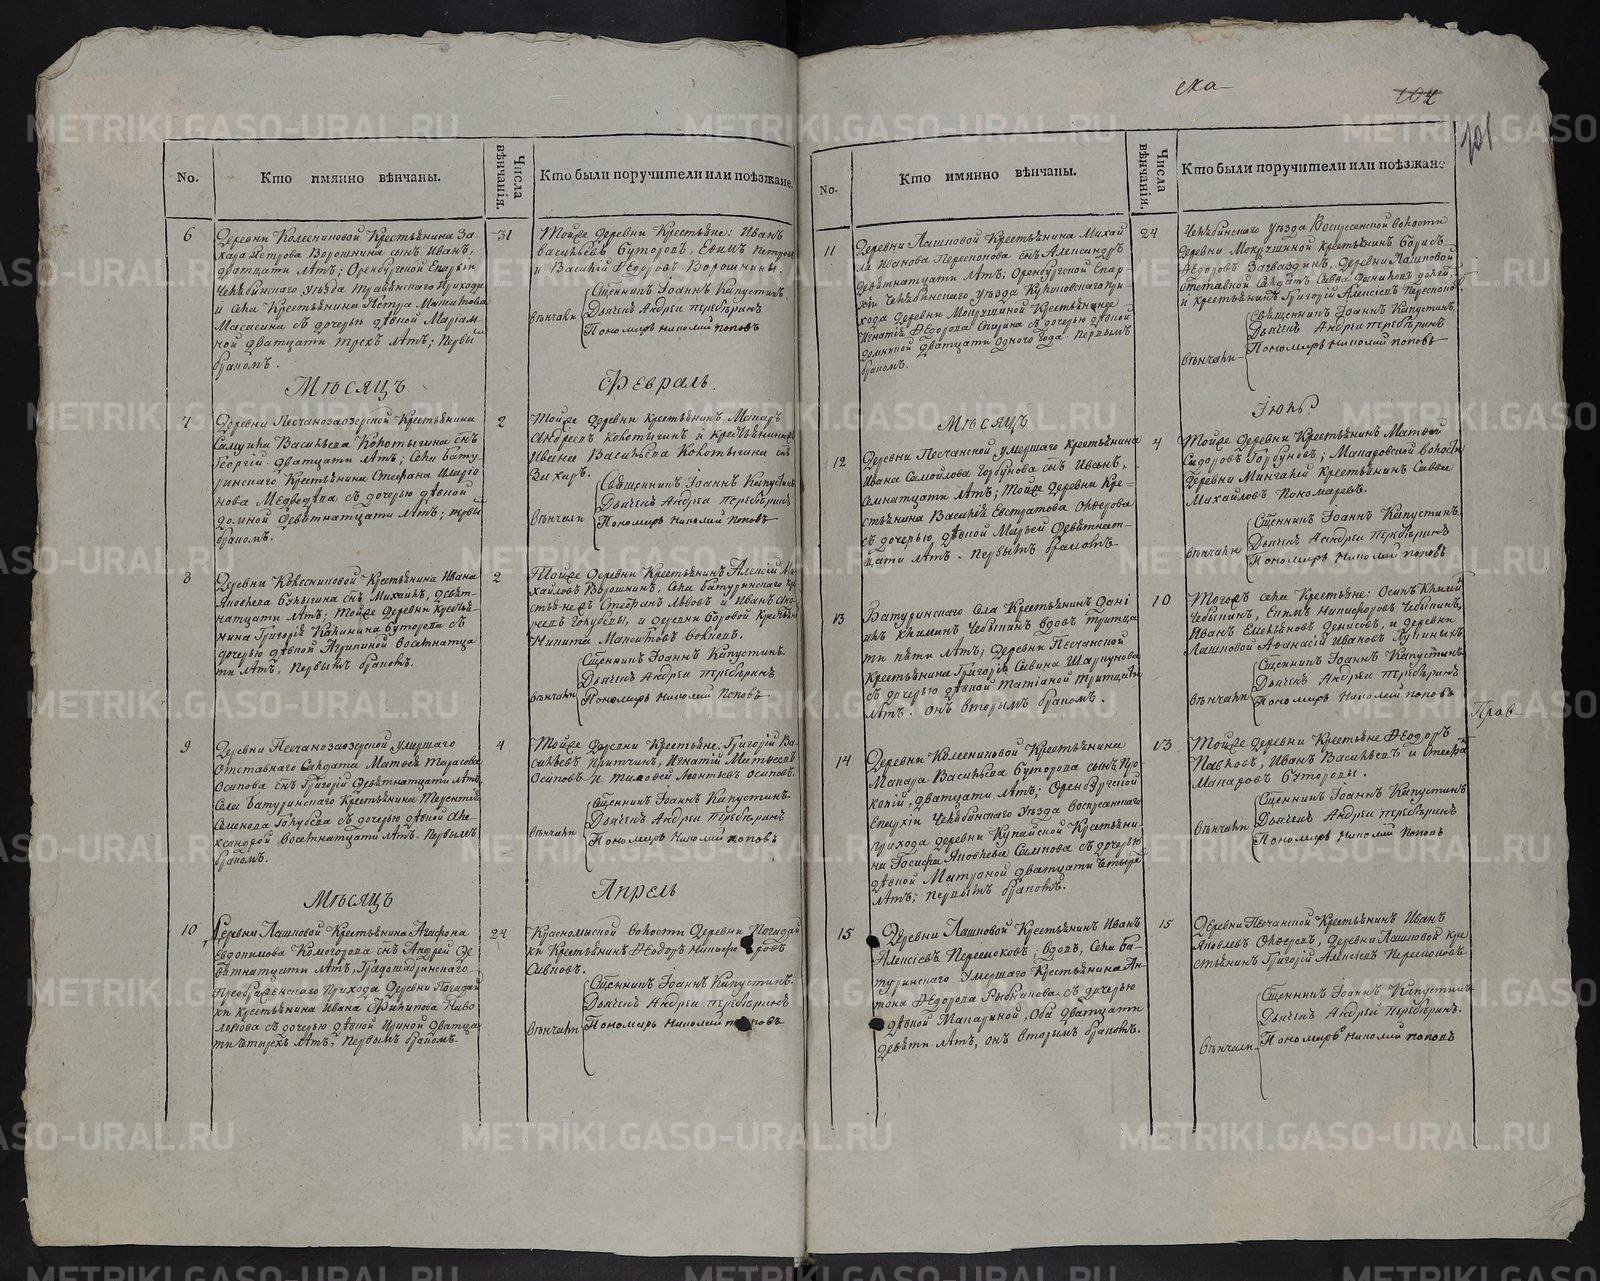 ска
104
101
No.
Кто имянно вѣнчаны.
Числа вѣнчанія.
Кто были поручители или поѣзжане.
6
Деревни Колесниковой Крестьянина За
хара Петрова Ворошнина сынъ Иванъ,
дватцати лѣтъ; Оренбургской Епархіи
Челябинскаго уѣзда
и села Крестьянина Петра
съ дочерью дѣвкой Маріам-
ной дватцати трехъ лѣтъ; первымъ
бракомъ.
31
Тойже деревни Крестьяне: Иванъ
Васильевъ Буторовъ, Ефимъ Петровъ
и Василій Ѳедоровъ Ворошнины.
вѣнчали
Сщенникъ Іоаннъ Капустинъ.
Дьячекъ Андрей
Пономарь Николай Поповъ
Мѣсяцъ
Февраль.
7
Деревни Песчанозаозерской Крестьянина
Самуила Васильева Кокотыгина сынъ
Георгій дватцати лѣтъ; Села Бату
ринскаго Крестьянина Стефана Иларіо
нова Медведева съ дочерью дѣвкой
Домной девятнатцати лѣтъ; первы
бракомъ.
2
Тойже деревни Крестьянинъ Макаръ
Андреевъ Кокотыгинъ и крестьянина
Ивана Васильева Кокотыгина сынъ
Захаръ.
вѣнчали
Священникъ Іоаннъ Капустинъ
Дьячекъ Андрей
Пономарь Николай Поповъ
8
Деревни Колесниковой Крестьянина Ивана
Яковлева сынъ Михаилъ, девят-
натцати лѣтъ; Тойже деревни Крестья-
нина Григорія Калинина Буторова съ
дочерью дѣвкой Агрипиной восемнатца
ти лѣтъ, первымъ бракомъ.
2
Тойже деревни Крестьянинъ Алексій Ми
хайловъ Ворошнинъ, Села Батуринскаго кре
стьянинъ Стефанъ Львовъ и Иванъ Анд
реевъ Голубевы, и деревни Боровой Крестьян
Никита
вѣнчали
Сщенникъ Іоаннъ Капустинъ.
Дьячекъ Андрей
Пономарь Николай Поповъ
9
Деревни Песчанозаозерской умершаго
отставнаго Салдата Матвея Тарасова
Осипова сынъ Григорій девятнатцати лѣтъ,
Села Батуринскаго Крестьянина Терентія
Семенова Голубева съ дочерью дѣвкой Але-
ксандрой восемнатцати лѣтъ. Первымъ
бракомъ.
4
Тойже деревни Крестьяне: Григорій Ва-
сильевъ Игнатій Матвеевъ
Осиповъ и Тимофей Леонтьевъ Осиповъ.
вѣнчали
Сщенникъ Іоаннъ Капустинъ.
Дьячекъ Андрей
Пономарь Николай поповъ
Мѣсяцъ
Апрель
10
Деревни Лашковой Крестьянина Агафона
Евдокимова Комогорова сынъ Андрей де
вятнатцати лѣтъ, Градошадринскаго
Преображенскаго прихода деревни Погадай
ки Крестьянина Ивана Филипова
съ дочерью дѣвкой Ириной дватца
ти четырехъ лѣтъ; первымъ бракомъ.
24
Красномыской волости деревни Погадай
ки Крестьянинъ Ѳедоръ
вѣнчали
Сщенникъ Іоаннъ Капустинъ.
Дьячекъ Андрей
Пономарь Николай поповъ
No.
Кто имянно вѣнчаны.
Числа вѣнчанія.
Кто были поручители или поѣзжане
11
Деревни Лашковой Крестьянина Михай
ла Иванова сынъ Александръ
девятнатцати лѣтъ; Оренбургской Епар
хіи Челябинскаго уѣзда при
хода деревни Мокрушиной Крестьянина
Игнатія Ѳедорова съ дочерью дѣвкой
Домникой дватцати одного года. Первымъ
бракомъ.
24
Челябинскаго уѣзда Воскресенской волости
деревни Мокрушиной крестьянинъ Борисъ
Ѳедоровъ Загваздинъ, деревни Лашковой
отставной Салдатъ Савва
и крестьянинъ Григорій Алексіевъ
вѣнчали
Священникъ Іоаннъ Капустинъ.
Дьячекъ Андрей
Пономарь Николай поповъ
Мѣсяцъ
Іюль.
12
Деревни Песчанской умершаго крестьянина
Ивана Самойлова Горбунова сынъ Иванъ,
семнатцати лѣтъ; Тойже деревни Кре-
стьянина Василія Евстратова
съ дочерью дѣвкой Марьей девятнат-
цати лѣтъ. Первымъ бракомъ.
4
Тойже деревни Крестьянинъ Матвей
Сидоровъ Горбуновъ; Макаровской волости
деревни Крестьянинъ Савва
Михайловъ Пономаревъ.
вѣнчали
Сщенникъ Іоаннъ Капустинъ.
Дьячекъ Андрей
Пономарь Николай поповъ
13
Батуринскаго Села Крестьянинъ Дані
илъ Климинъ Чебыкинъ вдовъ тритца
ти пяти лѣтъ; деревни Песчанской
Крестьянина Григорія Савина
съ дочерью дѣвкой Татіаной тритцати
лѣтъ. онъ вторымъ бракомъ.
10
Тогожъ села Крестьяне: Осипъ Климинъ
Чебыкинъ, Ефимъ Никифоровъ Чебыкинъ,
Иванъ Емельяновъ Денисовъ, и деревни
Лашковой Афанасій Ивановъ
вѣнчали
Сщенникъ Іоаннъ Капустинъ.
Дьячекъ Андрей
Пономарь Николай поповъ
Прав-
14
Деревни Колесниковой Крестьянина
Макара Васильева Буторова сынъ Про
копій, дватцати лѣтъ; Оренбургской
Епархіи Челябинскаго уѣзда Воскресенскаго
прихода деревни Купайской Крестьяни-
на Іосифа Яковлева съ дочерью
дѣвкой Матроной дватцати четырехъ
лѣтъ; первымъ бракомъ.
13
Тойже деревни Крестьяне Ѳеодоръ
Павловъ, Иванъ Васильевъ и Стефанъ
Макаровъ Буторовы.
вѣнчали
Сщенникъ Іоаннъ Капустинъ
Дьячекъ Андрей
Пономарь Николай поповъ
15
Деревни Лашковой Крестьянинъ Иванъ
Алексіевъ вдовъ, Села Ба-
туринскаго умершаго Крестьянина Ан-
тона Ѳедорова Рыбникова съ дочерью
дѣвкой Макариной, оба дватцати
девяти лѣтъ, онъ вторымъ бракомъ.
15
Деревни Песчанской Крестьянинъ Иванъ
Яковлевъ деревни Лашковой Кре
стьянинъ Григорій Алексіевъ
вѣнчали
Сщенникъ Іоаннъ Капустинъ
Дьячекъ Андрей
Пономарь Николай поповъ
METRIKI.GASO-URAL.RU